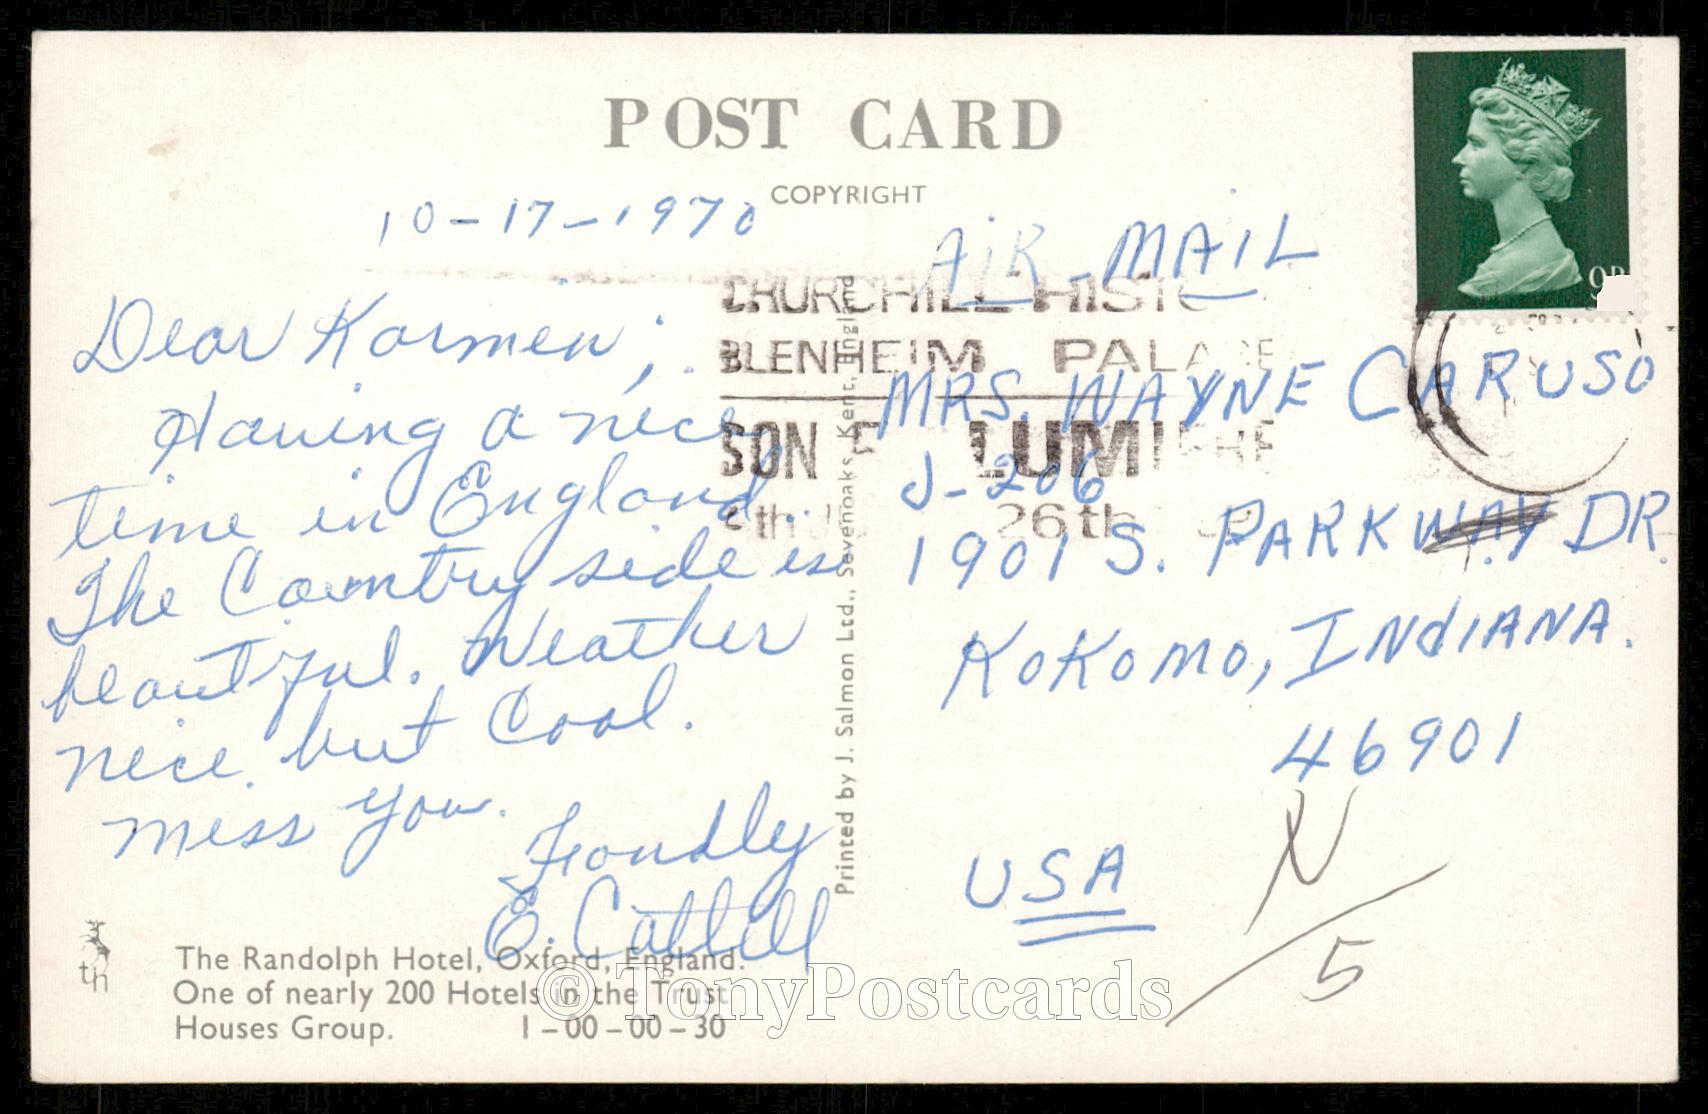 POST CARD
COPYRIGHT
10-17-1970
AIR-MAIL
Dear Karmen,
Having a nice
time in England.
The Country side is
beautiful. Weather
nice but Cool.
Miss you.
Fondly
E. Cattell
CHURCHILL HISTO
BLENHEIM PALACE
SON E LUMIERE
26th
9P
MRS. WAYNE CARUSO
J-206
1901 S. PARKWAY DR.
KOKOMO, INDIANA.
46901
USA
N
5
Printed by J. Salmon Ltd., Sevenoaks, Kent, England
th
The Randolph Hotel, Oxford, England.
One of nearly 200 Hotels in the Trust
Houses Group. 1-00-00-30
© TonyPostcards